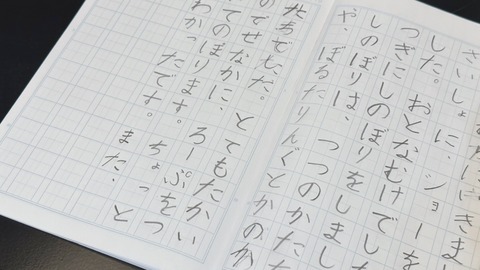 にきま
さいしょに、ショーを
した。おとなむけでした
つぎにしのぼりをしまし
しのぼりは、つつのかた
や、ぼるたりんぐとかのか
たちでした。とてもたかい
のでせなかに、ろーぷをつ
てのぼります。ちょっ
わかったです。また、と